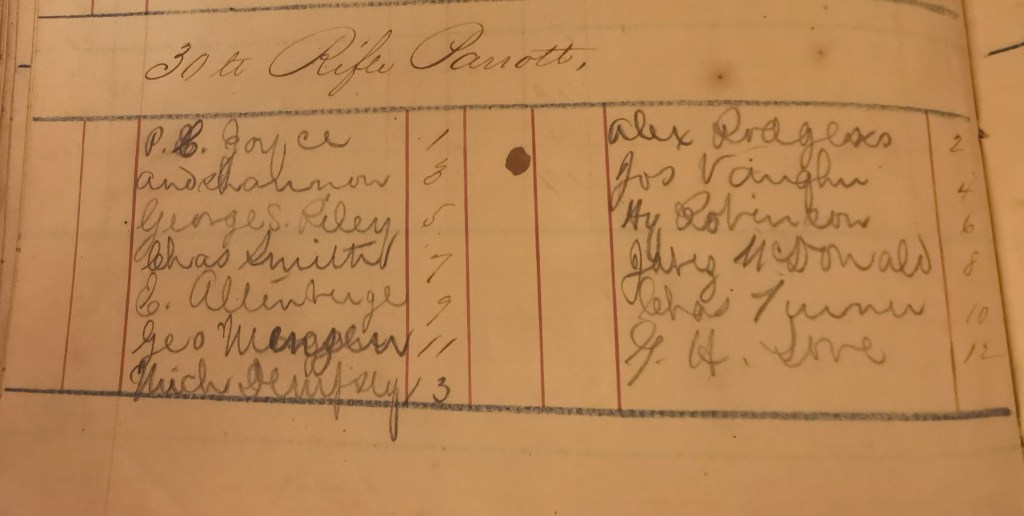 30 tt Rifle Parrott,
P. C. Joyce 1 Alex Rodgers 2
And Shannon 3 Jos Vaughn 4
George S. Riley 5 Hy Robinson 6
Chas Smith 7 McDonald 8
E. Allenberge 9 Chas Turner 10
Geo 11 G. H. Love 12
Mich Dempsey 13